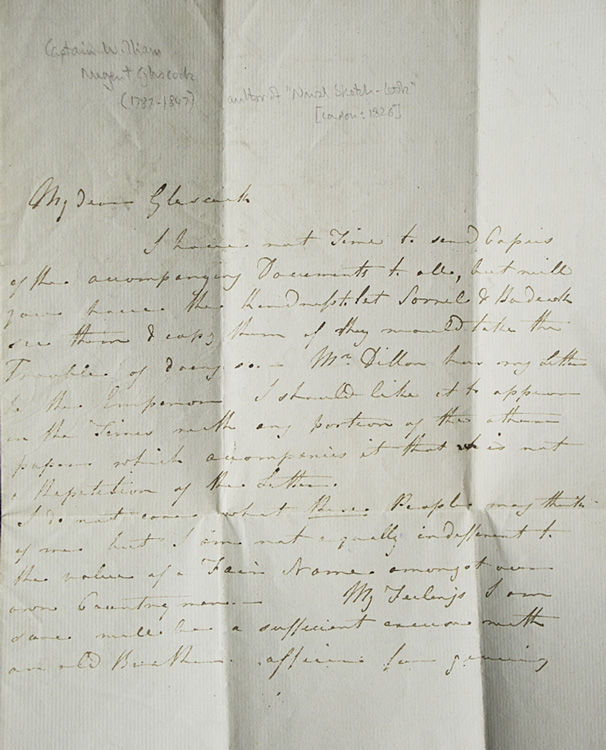 Captain William
Nugent Glascock
(1787-1847) author of "Naval Sketch-book"
[London: 1826]
My dear Glascock
I have not Time to send Copies
of the accompanying Documents to all, but will
you have the Kindness to let Sorrel & Badcock
see them & copy them if they would take the
Trouble of doing so.- Mr. Dillon has my Letter
to the Emperor I should like it to appear
in the Times with any portion of the other
papers which accompanies it that is not
a Repetition of the Letter.
I do not care what Base People may think
of me but I am not equally indifferent to
the value of a Fair Name amongst our
own Countrymen.- My Feelings I am
sure will be a sufficient excuse with
an old Brother officer for giving